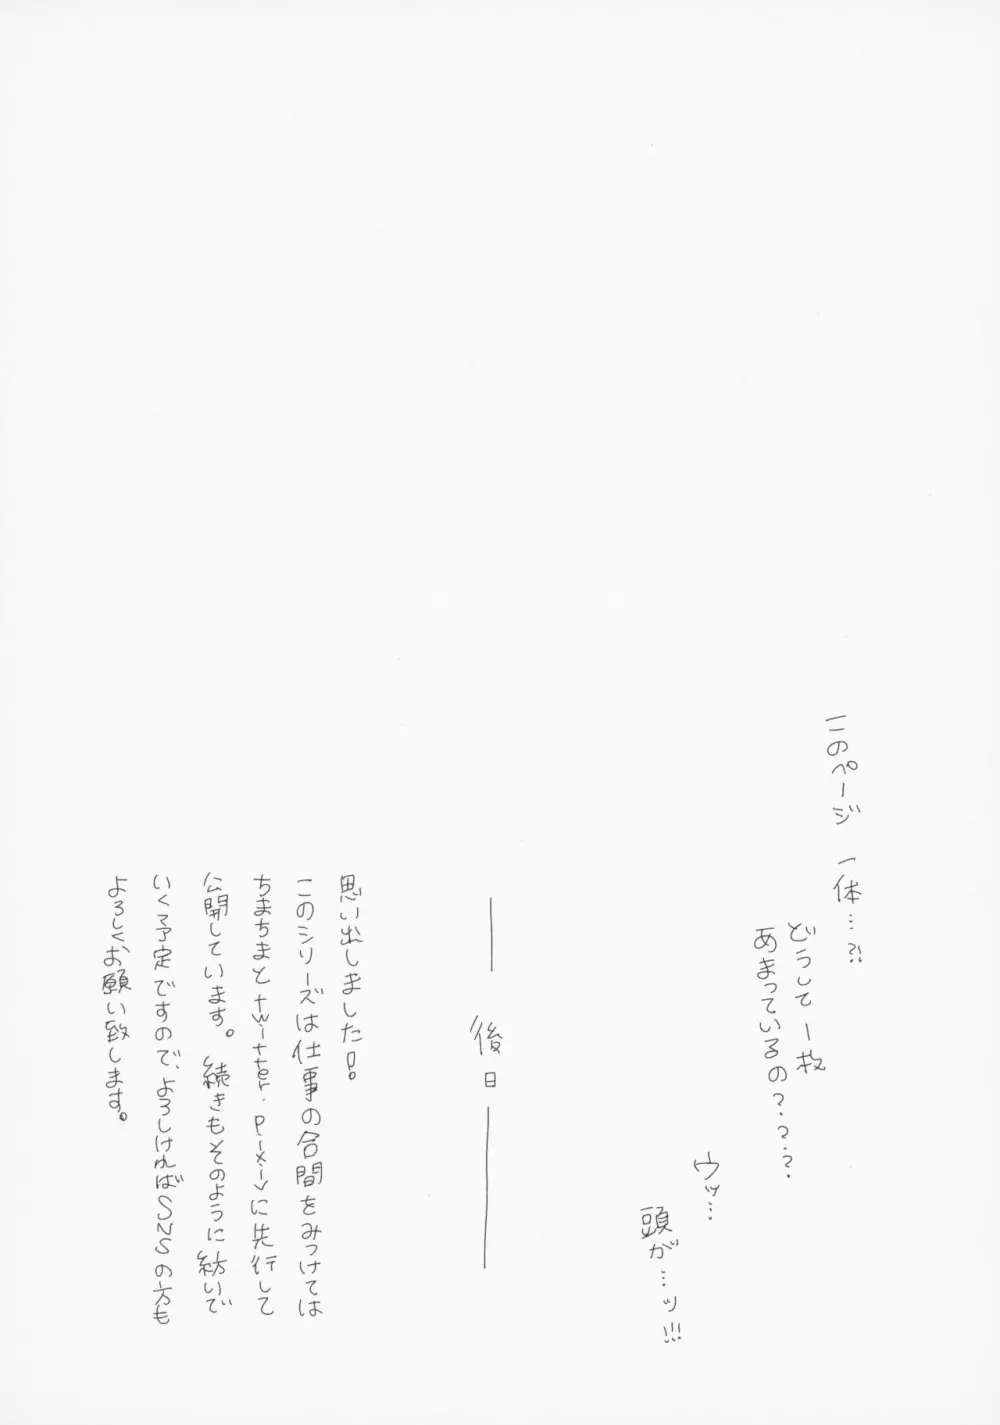 このページ 一体…?!
どうして一枚
あまっているの?.?.?.
ウッ…
頭が…ッ!!!
後日
思い出しました!
このシリーズは仕事の合間をみつけては
ちまちまとtwitter.pixivに先行して
公開しています。続きもそのように紡いで
いく予定ですので、よろしければSNSの方も
よろしくお願い致します。